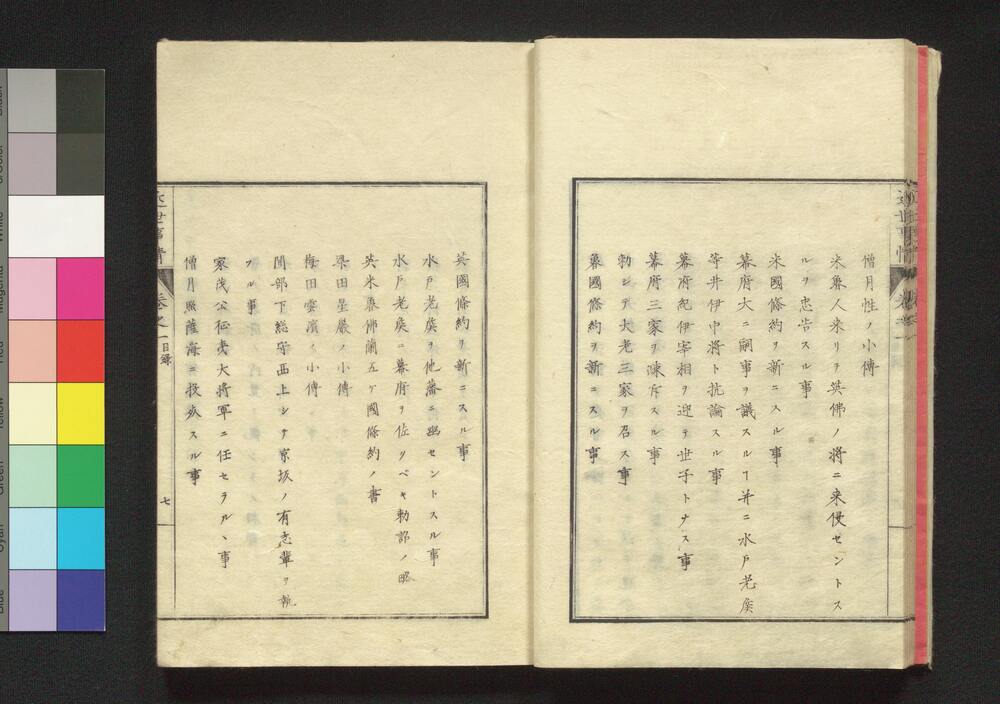 僧月性ノ小傳
米魯人来リテ英佛ノ將ニ来侵セントス
ルヲ忠告スル事
米國條約ヲ新ニスル事
幕府大ニ嗣事ヲ議スルヿ并ニ水戸老侯
等井伊中將ト抗論スル事
幕府紀伊宰相ヲ迎テ世子トナス事
幕府三家ヲ陳斥スル事
勅シテ大老三家ヲ召ス事
魯國條約ヲ新ニスル事
英國條約ヲ新ニスル事
水戸老侯ヲ他藩ニ幽セントスル事
水戸老侯ニ幕府ヲ位スベキ勅諚ノ略
英米魯佛蘭五ケ國條約ノ書
梁田星巖ノ小傳
梅田雲濱ノ小傳
間部下総守西上シテ京坂ノ有志輩ヲ執
フル事
家茂公征夷大将軍ニ任セラルヽ事
僧月照薩海ニ投災スル事
近世事情
巻之一目録
七